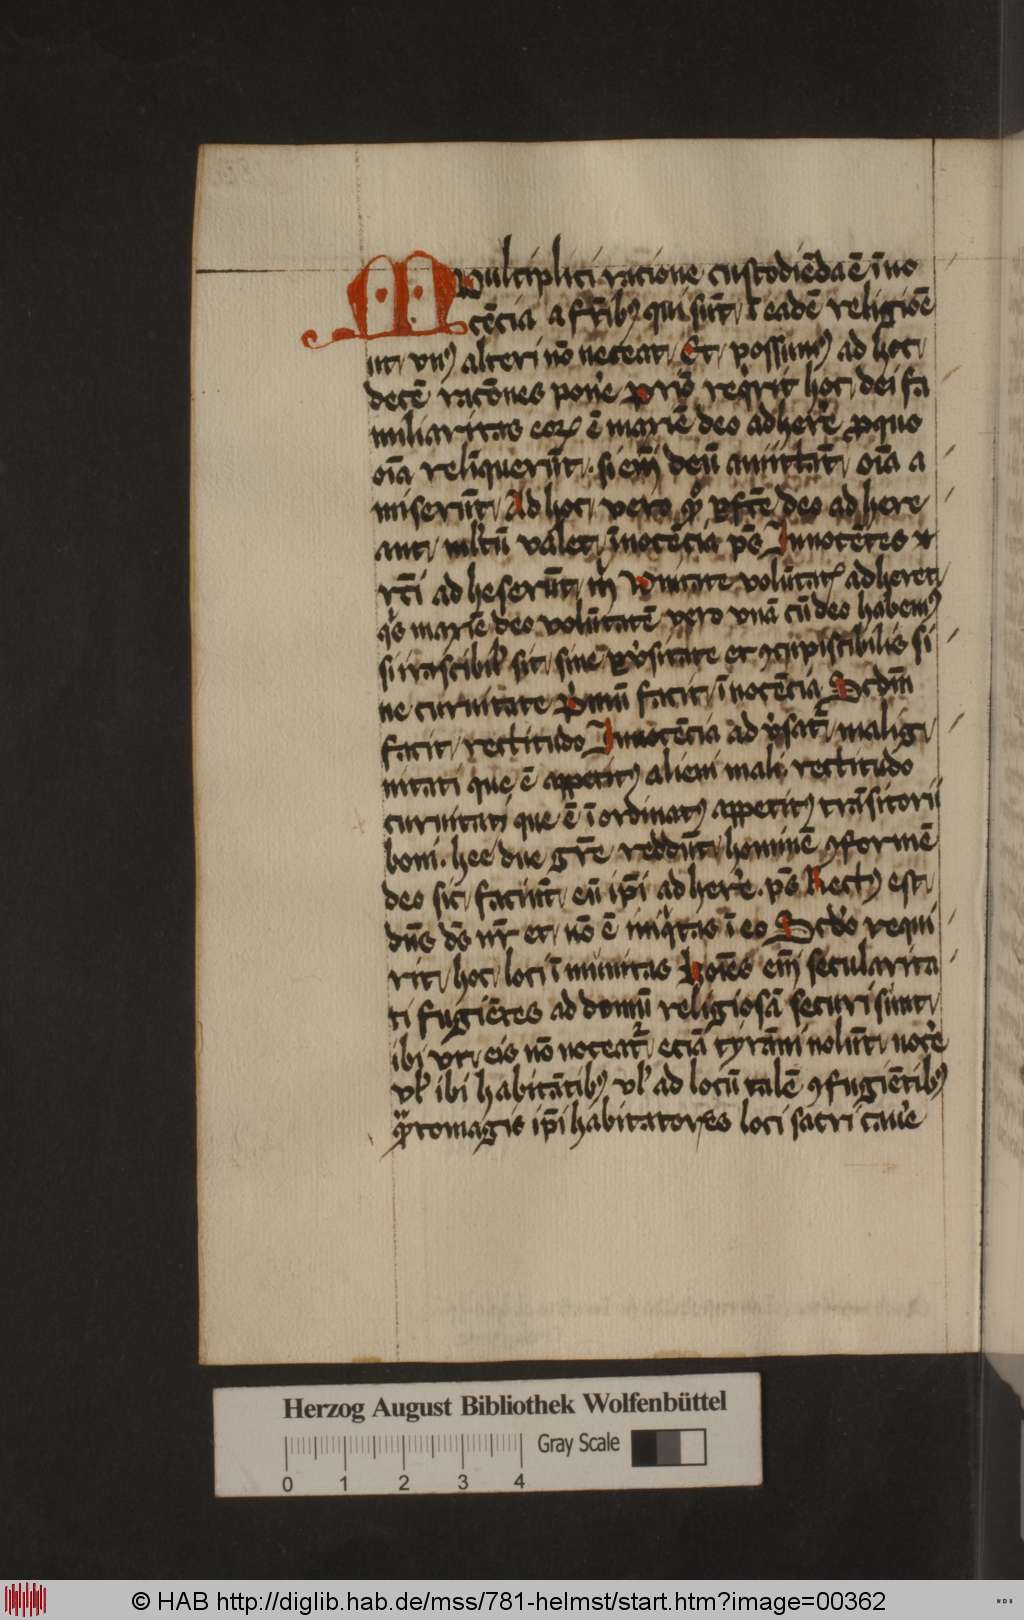 Multiplici racione custodiēda ē īno
cēcia a fr̄ibꝫ qui sūt ī eadē religiōe
ut vnꝰ alteri nō noceat Et possumꝰ ad hoc
decē racōnes pone̕ req̕rit hoc dei fa
miliaritas eoꝝ ē deo adhere̕
oīa reliquerūt si em̄ deū amittāt oīa a
miserūt Ad hoc vero deo adhere
ant ml̕tū valet īnocēcia p̄s Innocētes et
rc̄i adheserūt m̄ adheret
deo volūtatē vero vnā cū deo habemꝰ
si irascibil̕ sit sine et ꝯcupiscibilis si
ne curuitate P̕mū facit īnocēcia Scdm̄
facit rectitudo Innocēcia malig
nitati que ē appetitꝰ alieni mali rectitudo
curuitati que ē īordinatꝰ appetitꝰ trāsitorii
boni . hee due reddūt hominē ꝯformē
deo sic faciūt eū ip̄i adhere̕ . p̄s Rectꝰ est
dn̄s ds̄ nr̄ et nō ē iniq̕tas ī eo Scd̕o requi
rit hoc loci īmunitas hoīes em̄ secularita
ti fugiētes ad domū religiosā securi sunt
ibi vt eis nō noceat̄ eciā tyrāni nolūt noce̕
vl̕ ibi habitātibꝰ vl̕ ad locū talē ꝯfugiētibꝰ
magis ip̄i habitatores loci sacri caue̕
Herzog August Bibliothek Wolfenbüttel
Gray Scale
0 1 2 3 4
© HAB http://diglib.hab.de/mss/781-helmst/start.htm?image=00362